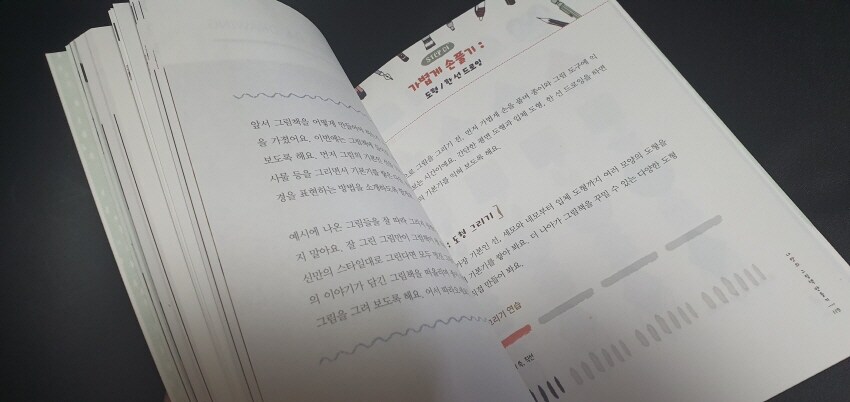 앞서 그림책을 어떻게
을 가졌어요. 이번에는 그림책에
보도록 해요. 먼저 그림의 기본인
사물 등을 그리면서 기본기를
경을 표현하는 방법을 소개하도록
예시에 나온 그림들을 잘 따라 그리
지 말아요. 잘 그린 그림만이 그림책이
신만의 스타일대로 그린다면 모두
의 이야기가 담긴 그림책을 떠올리며
그림을 그려 보도록 해요. 어서 따라오세요
STEP 01
가볍게 손풀기 :
도형 / 한 선 드로잉
으로 그림을 그리기 전, 먼저 가볍게 손을 풀며 종이와 그림 도구에 익
보는 시간이에요. 간단한 평면 도형과 입체 도형, 한 선 드로잉을 하면
의 기본기를 익혀 보도록 해요.
: 도형 그리기
가장 기본인 선, 세모와 네모부터 입체 도형까지 여러 모양의 도형을
기본기를 쌓아 봐요. 더 나아가 그림책을 꾸밀 수 있는 다양한 도형
직접 만들어 봐요.
그리기 연습